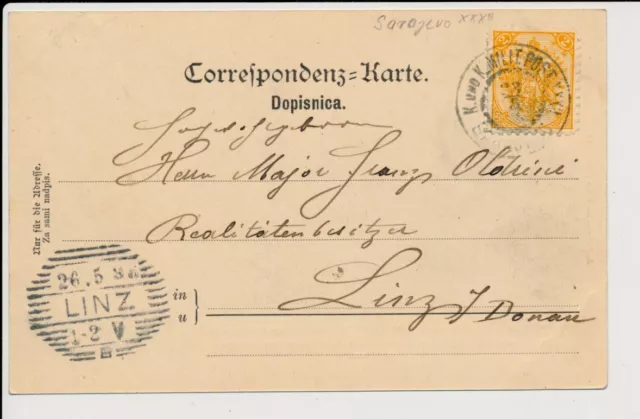 Sarajevo XXXII
Correspondenz-Karte.
Dopisnica.
K. UND K. MILIT. POST XXXII
2
2
Hochwohlgeboren
Herrn Major Franz
Realitätenbesitzer
in
u
Linz / Donau
Nur für die Adresse.
Za sami nadpis.
26.5.98
LINZ
1-2 V
B